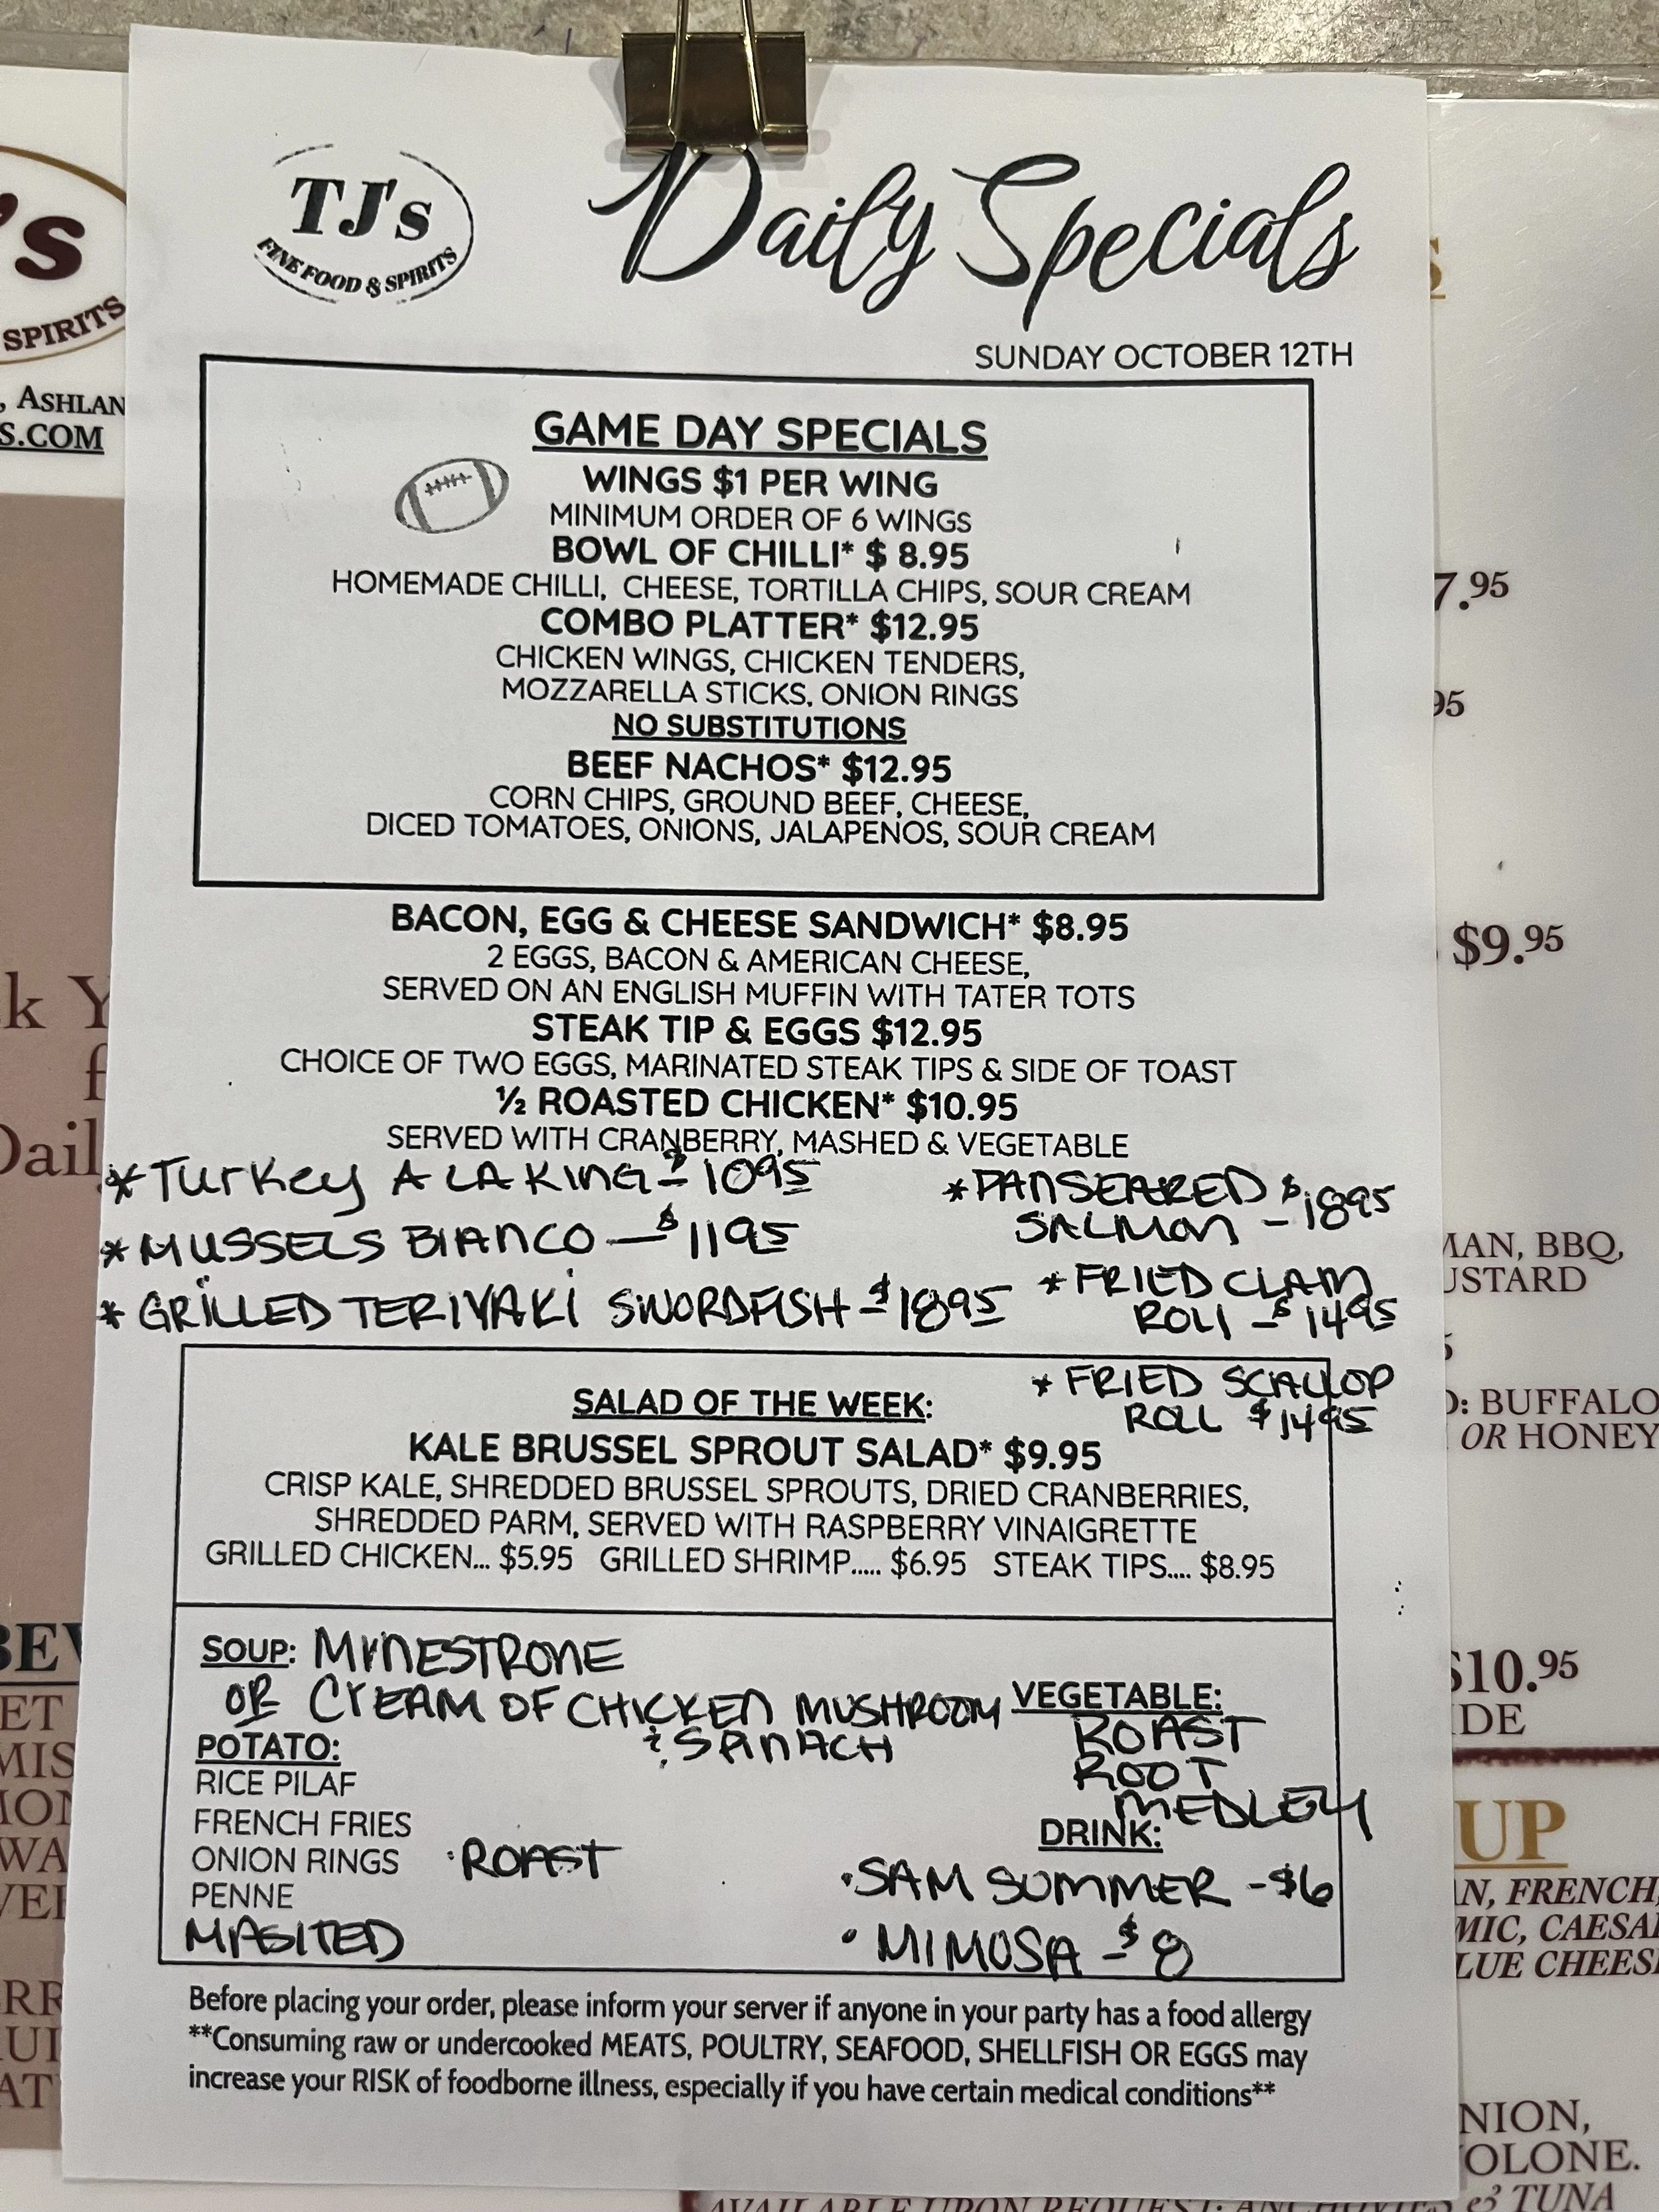 TJ's
FINE FOOD & SPIRITS
Daily Specials
SUNDAY OCTOBER 12TH
GAME DAY SPECIALS
WINGS $1 PER WING
MINIMUM ORDER OF 6 WINGS
BOWL OF CHILLI* $ 8.95
HOMEMADE CHILLI, CHEESE, TORTILLA CHIPS, SOUR CREAM
COMBO PLATTER* $12.95
CHICKEN WINGS, CHICKEN TENDERS,
MOZZARELLA STICKS, ONION RINGS
NO SUBSTITUTIONS
BEEF NACHOS* $12.95
CORN CHIPS, GROUND BEEF, CHEESE,
DICED TOMATOES, ONIONS, JALAPENOS, SOUR CREAM
BACON, EGG & CHEESE SANDWICH* $8.95
2 EGGS, BACON & AMERICAN CHEESE,
SERVED ON AN ENGLISH MUFFIN WITH TATER TOTS
STEAK TIP & EGGS $12.95
CHOICE OF TWO EGGS, MARINATED STEAK TIPS & SIDE OF TOAST
½ ROASTED CHICKEN* $10.95
SERVED WITH CRANBERRY, MASHED & VEGETABLE
*Turkey A LA KING - $1095
*MUSSELS BIANCO - $1195
*GRILLED TERIYAKI SWORDFISH - $1895
*PANSEARED
SALMON - $1895
*FRIED CLAM
ROLL - $1495
*FRIED SCALLOP
ROLL $1495
SALAD OF THE WEEK:
KALE BRUSSEL SPROUT SALAD* $9.95
CRISP KALE, SHREDDED BRUSSEL SPROUTS, DRIED CRANBERRIES,
SHREDDED PARM, SERVED WITH RASPBERRY VINAIGRETTE
GRILLED CHICKEN... $5.95 GRILLED SHRIMP..... $6.95 STEAK TIPS.... $8.95
SOUP: MINESTRONE
OR CREAM OF CHICKEN MUSHROOM
& SPINACH
POTATO:
RICE PILAF
FRENCH FRIES
ONION RINGS ·ROAST
PENNE
MASHED
VEGETABLE:
ROAST
ROOT
MEDLEY
DRINK:
·SAM SUMMER - $6
·MIMOSA - $8
Before placing your order, please inform your server if anyone in your party has a food allergy
**Consuming raw or undercooked MEATS, POULTRY, SEAFOOD, SHELLFISH OR EGGS may
increase your RISK of foodborne illness, especially if you have certain medical conditions**
's
SPIRITS
, ASHLAN
S.COM
7.95
95
$9.95
MAN, BBQ,
USTARD
: BUFFALO
OR HONEY
$10.95
IDE
UP
N, FRENCH,
MIC, CAESA
LUE CHEES
NION,
OLONE.
& TUNA